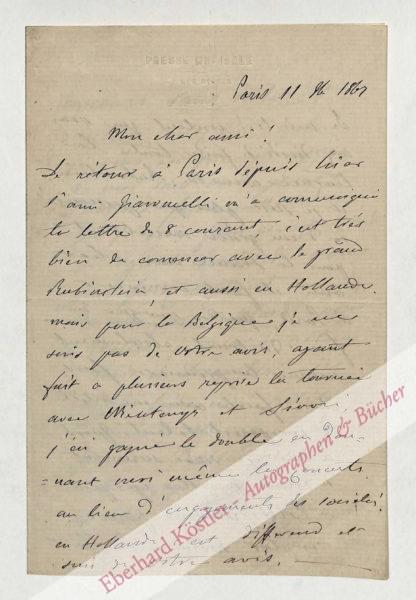 PRESSE
Paris 11 1867
Mon cher ami!
De retour à Paris dépuis hier
l'ami Giannelli m'a comuniqué
ta lettre du 8 courant, c'est trés
bien de comencer avec le grand
Rubinstein, et aussi en Hollande,
mais pour la Belgique je ne
suis pas de votre avis, ayant
fait a plusieurs reprise la tournée
avec Vieuxtemps et Sivori,
j'ai gagné le double en don-
-nant moi même les concerts
au lieu d'engagements des sociétés.
en Hollande c'est different et
suis de votre avis.
Eberhard Köstler - Autographen & Bücher